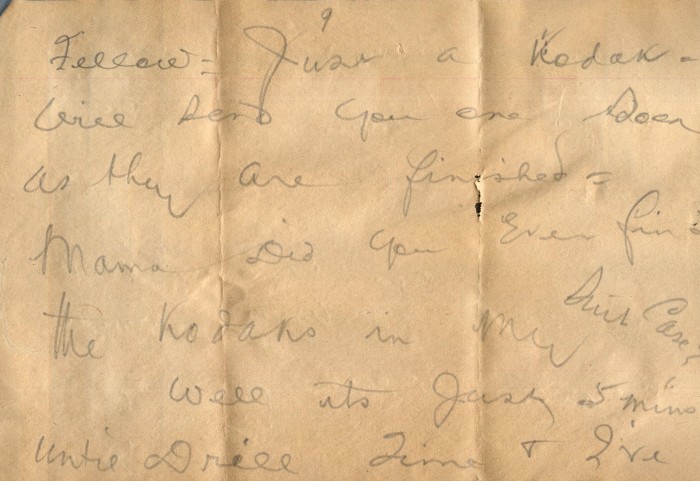 9
Fellow = Just a Kodak -
Will send you one soon
as they are finished =
Mama Did you Ever find
the Kodaks in My Suit Case,
Well its Just 5 mins
Until Drill Time & I've